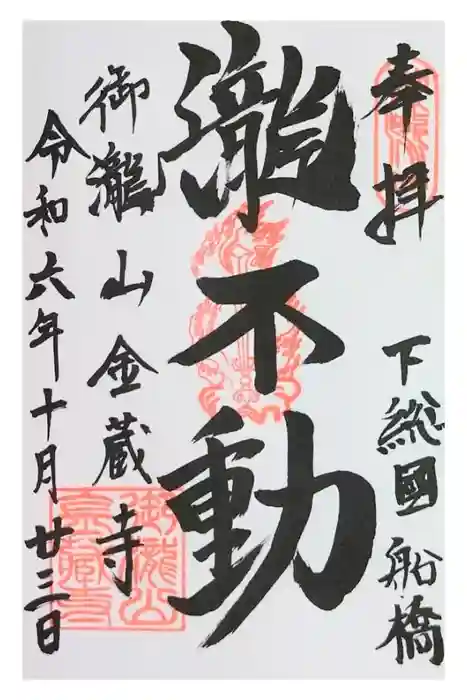 奉拝
下総國船橋
瀧不動
御瀧山金蔵寺
令和六年十月廿三日
御瀧山
金蔵寺